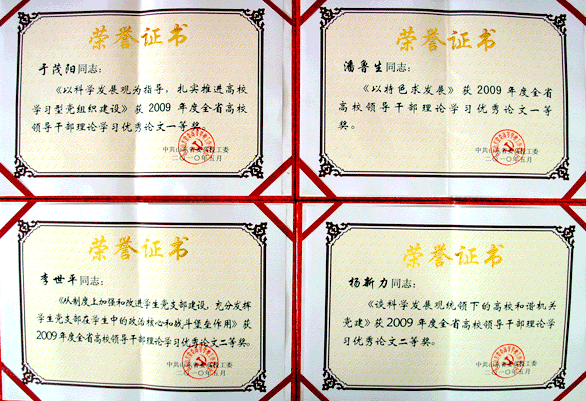 荣誉证书
于茂阳同志：
《以科学发展观为指导，扎实推进高校
学习型党组织建设》获 2009 年度全省高校
领导干部理论学习优秀论文一等奖。
中共山东省委高校工委
二〇一〇年五月
荣誉证书
潘鲁生同志：
《以特色求发展》获 2009 年度全省
高校领导干部理论学习优秀论文一等
奖。
中共山东省委高校工委
二〇一〇年五月
荣誉证书
李世平同志：
《从制度上加强和改进学生党支部建设，充分发挥
学生党支部在学生中的政治核心和战斗堡垒作用》获
2009年度全省高校领导干部理论学习优秀论文二等奖。
中共山东省委高校工委
二〇一〇年五月
荣誉证书
杨新力同志：
《谈科学发展观统领下的高校和谐机关
党建》获 2009 年度全省高校领导干部理论学
习优秀论文二等奖。
中共山东省委高校工委
二〇一〇年五月